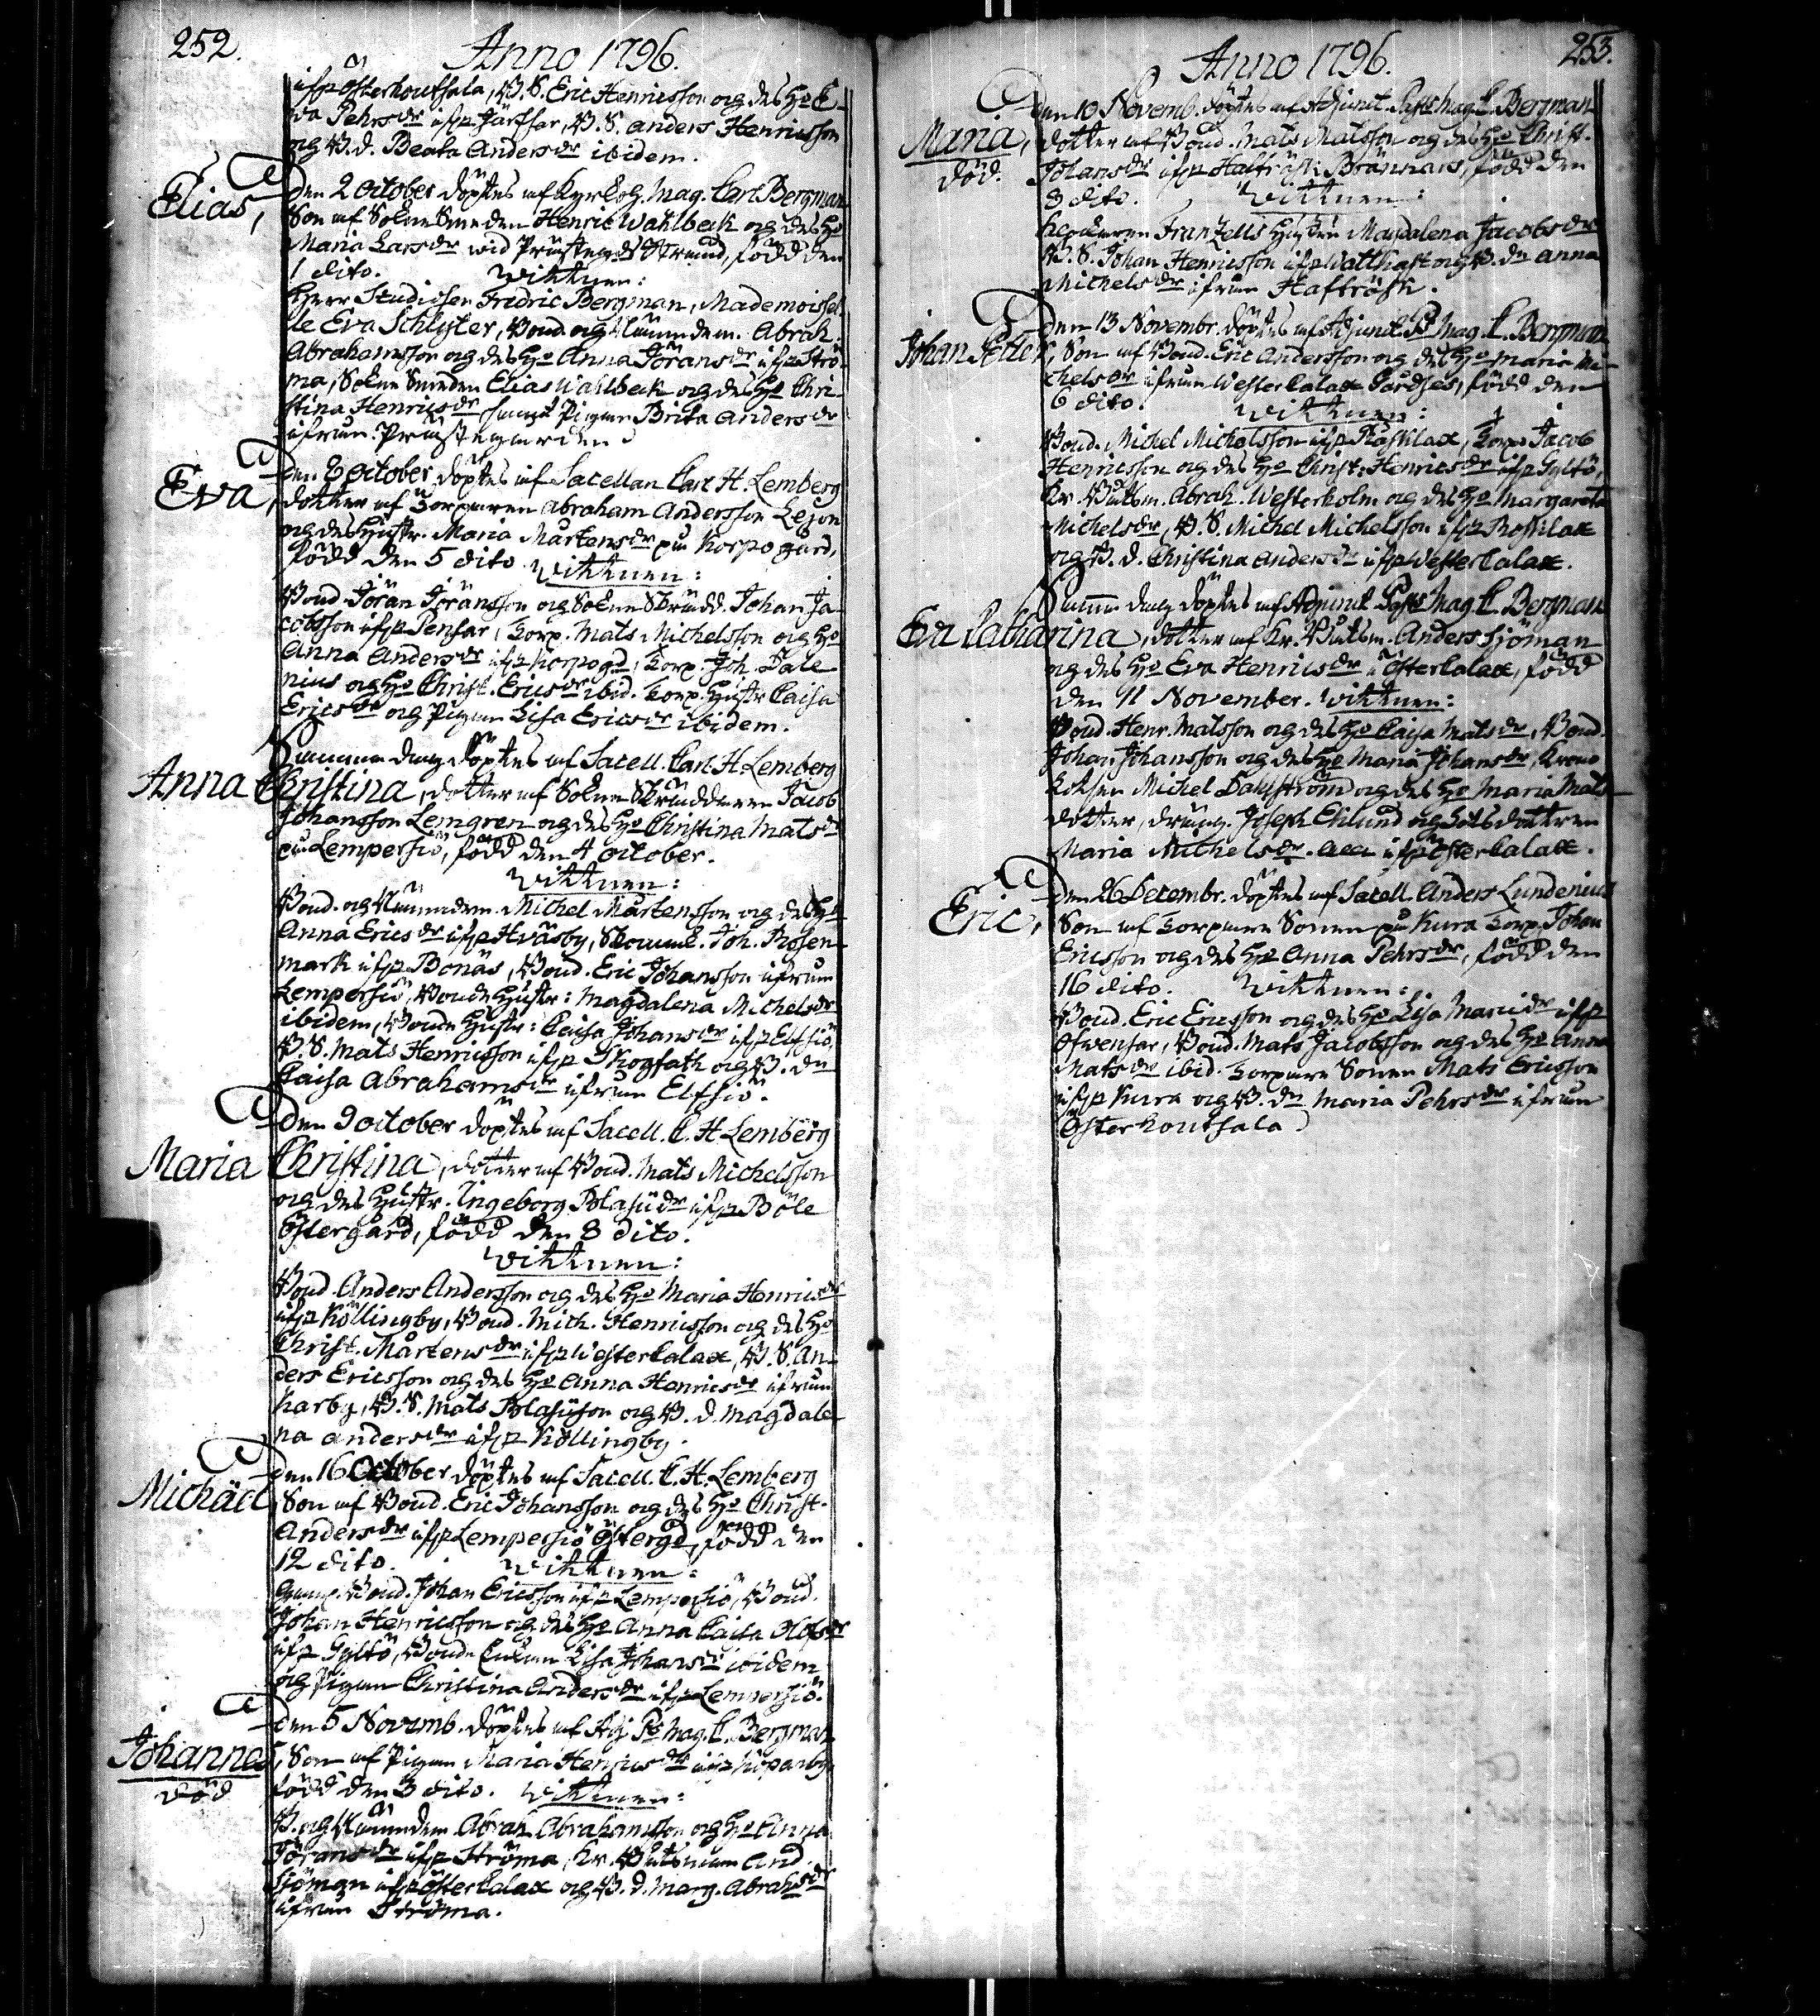 252.
Anno 1796.
ifr. Österhoutsala, B. S. Eric Henricsson och des H:o E-
va Pehrsdr ifr. Järfsar, B. S. Anders Henricsson
och B. d. Beata Andersdr ibidem.
Elias,
Den 2 October döptes af Kyrkoh. Mag. Carl Bergman
Son af Sokne Smeden Henric Wahlbeck och des H:o
Maria Larsdr wid Prästegds Strand, född den
1 dito. Vittnen:
Herr Studiosen Fredric Bergman, Mademoisel-
le Eva Schlyter, Bond. och Nämndem. Abrah.
Abrahamsson och des H:o Anna Jöransdr ifr. Strö-
ma, Sokne Smeden Elias Wahlbeck och des H:o Chri-
stina Henricsdr samt Pigan Brita Andersdr
ifrån Prästegården
Eva,
Den 8 October döptes af Sacellan Carl H. Lemberg
dotter af Torparen Abraham Andersson Lejon
och des Hustr. Maria Mårtensdr på Korpogård,
född den 5 dito. Vittnen:
Bond. Jöran Jöransson och Sokne Skrädd. Johan Ja-
cobsson ifr. Pensar, Torp. Mats Michelsson och H:o
Anna Andersdr ifr. Korpogd, Torp. Joh. Dale
nius och H:o Christ. Ericsdr ibid. Torp. Hustr. Caisa
Ericsdr och Pigan Lisa Ericsdr ibidem.
Samma dag döptes af Sacell. Carl H. Lemberg
Anna Christina, dotter af Sokne Skräddaren Jacob
Johansson Lemgren och des H:o Christina Matsdr
på Lempersiö, född den 4 October.
Vittnen:
Bond. och Nämndem. Michel Mårtensson och des H:o
Anna Ericsdr ifr. Hväsby, Joh. Rosen-
mark ifr. Bonäs, Bond. Eric Johansson ifrån
Lempersiö, Bonde Hustr: Magdalena Michelsdr
ibidem, Bonde Hustr: Caisa Johansdr ifr. Elfsiö,
B. S. Mats Henricsson ifr. Skogfath och B. dr
Caisa Abrahamsdr ifrån Elfsiö.
Den 9 October döptes af Sacell. C. H. Lemberg
Maria Christina, dotter af Bond. Mats Michelsson
och des Hustr. Ingeborg Blasiidr ifr. Böle
Östergård, född den 8 dito.
Vittnen:
Bond. Anders Andersson och des H:o Maria Henricsdr
ifr. Köllingby, Bond. Mich. Henricsson och des H:o
Christ. Mårtensdr ifr. Westerlalax, B. S. An-
ders Ericsson och des H:o Anna Henricsdr ifrån
Karby, B. S. Mats Blasiison och B. d. Magdale
na Andersdr ifr. Köllingby.
Den 16 October döptes af Sacell. C. H. Lemberg
Michäel, Son af Bond. Eric Johansson och des H:o Christ.
Andersdr ifr. Lempersiö Östergd, född den
12 dito. Vittnen:
Bond. Johan Ericsson ifr. Lempersiö, Bond.
Johan Henricsson och des H:o Anna Caisa Olofsdr
ifr. Gyltö, Bonde Lisa Johansdr ibidem
och Pigan Christina Andersdr ifr. Lempersiö.
Den 5 Novemb. döptes af Adj. Ps Mag. C. Bergman
Johannes, Son af Pigan Maria Henricsdr ifr. Kopparby
död
född den 3 dito. Vittnen:
B. och Nämndem. Abrah. Abrahamsson och H:o Anna
Jöransdr ifr. Ströma, Kr. Båtsman And.
Sjöman ifr. Österlalax och B. d. Marg. Abrahsdr
ifrån Ströma.
253.
Anno 1796.
Den 10 Novemb. döptes af Adjunct. Mag. C. Bergman
Maria, dotter af Bond. Mats Matsson och des H:o Christ.
död.
Johansdr ifr. Hafträsk Brännars, född den
8 dito. Vittnen:
Klockaren Franzells Hustru Magdalena Jacobsdr
B. S. Johan Henricsson ifr. Watthast och B. dr Anna
Michelsdr ifrån Hafträsk.
Den 13 Novembr. döptes af Adjunct Ps Mag. C. Bergman
Johan Petter, Son af Bond. Eric Andersson och des H:o Maria Mi-
chelsdr ifrån Westerlalax Gårdses, född den
6 dito. Vittnen:
Bond. Michel Michelsson ifr. Rosklax, Torp. Jacob
Henricsson och des H:o Christ: Henricsdr ifr. Gyltö,
Kr. Båtsm. Abrah. Westerholm och des H:o Margareta
Michelsdr, B. S. Michel Michelsson ifr. Rosklax
och B. d. Christina Andersdr ifr. Westerlalax.
Samma dag döptes af Adjunct Mag C. Bergman
Eva Catharina, dotter af Kr. Båtsm. Anders Sjöman
och des H:o Eva Henricsdr i Österlalax, född
den 11 November. Vittnen:
Bond. Henr. Matsson och des H:o Caisa Matsdr, Bond.
Johan Johansson och des H:o Maria Johansdr, Krono
Michel Dahlström och des H:o Maria Mats
dotter, dräng. Joseph Ehlund och dottren
Maria Michelsdr. alla ifr. Österlalax.
Den 26 Decembr. döptes af Sacell. Anders Lundenius
Eric, Son af Torpare Sonen på Kura Torp, Johan
Ericsson och des H:o Anna Pehrsdr, född den
16 dito. Vittnen:
Bond. Eric Ericsson och des H:o Lisa Marcidr ifr.
Ofvensar, Bond. Mats Jacobsson och des H:o Anna
Matsdr ibid. Torpare Sonen Mats Ericsson
ifr. Kura och B. dr Maria Pehrsdr ifrån
Österhoutsala